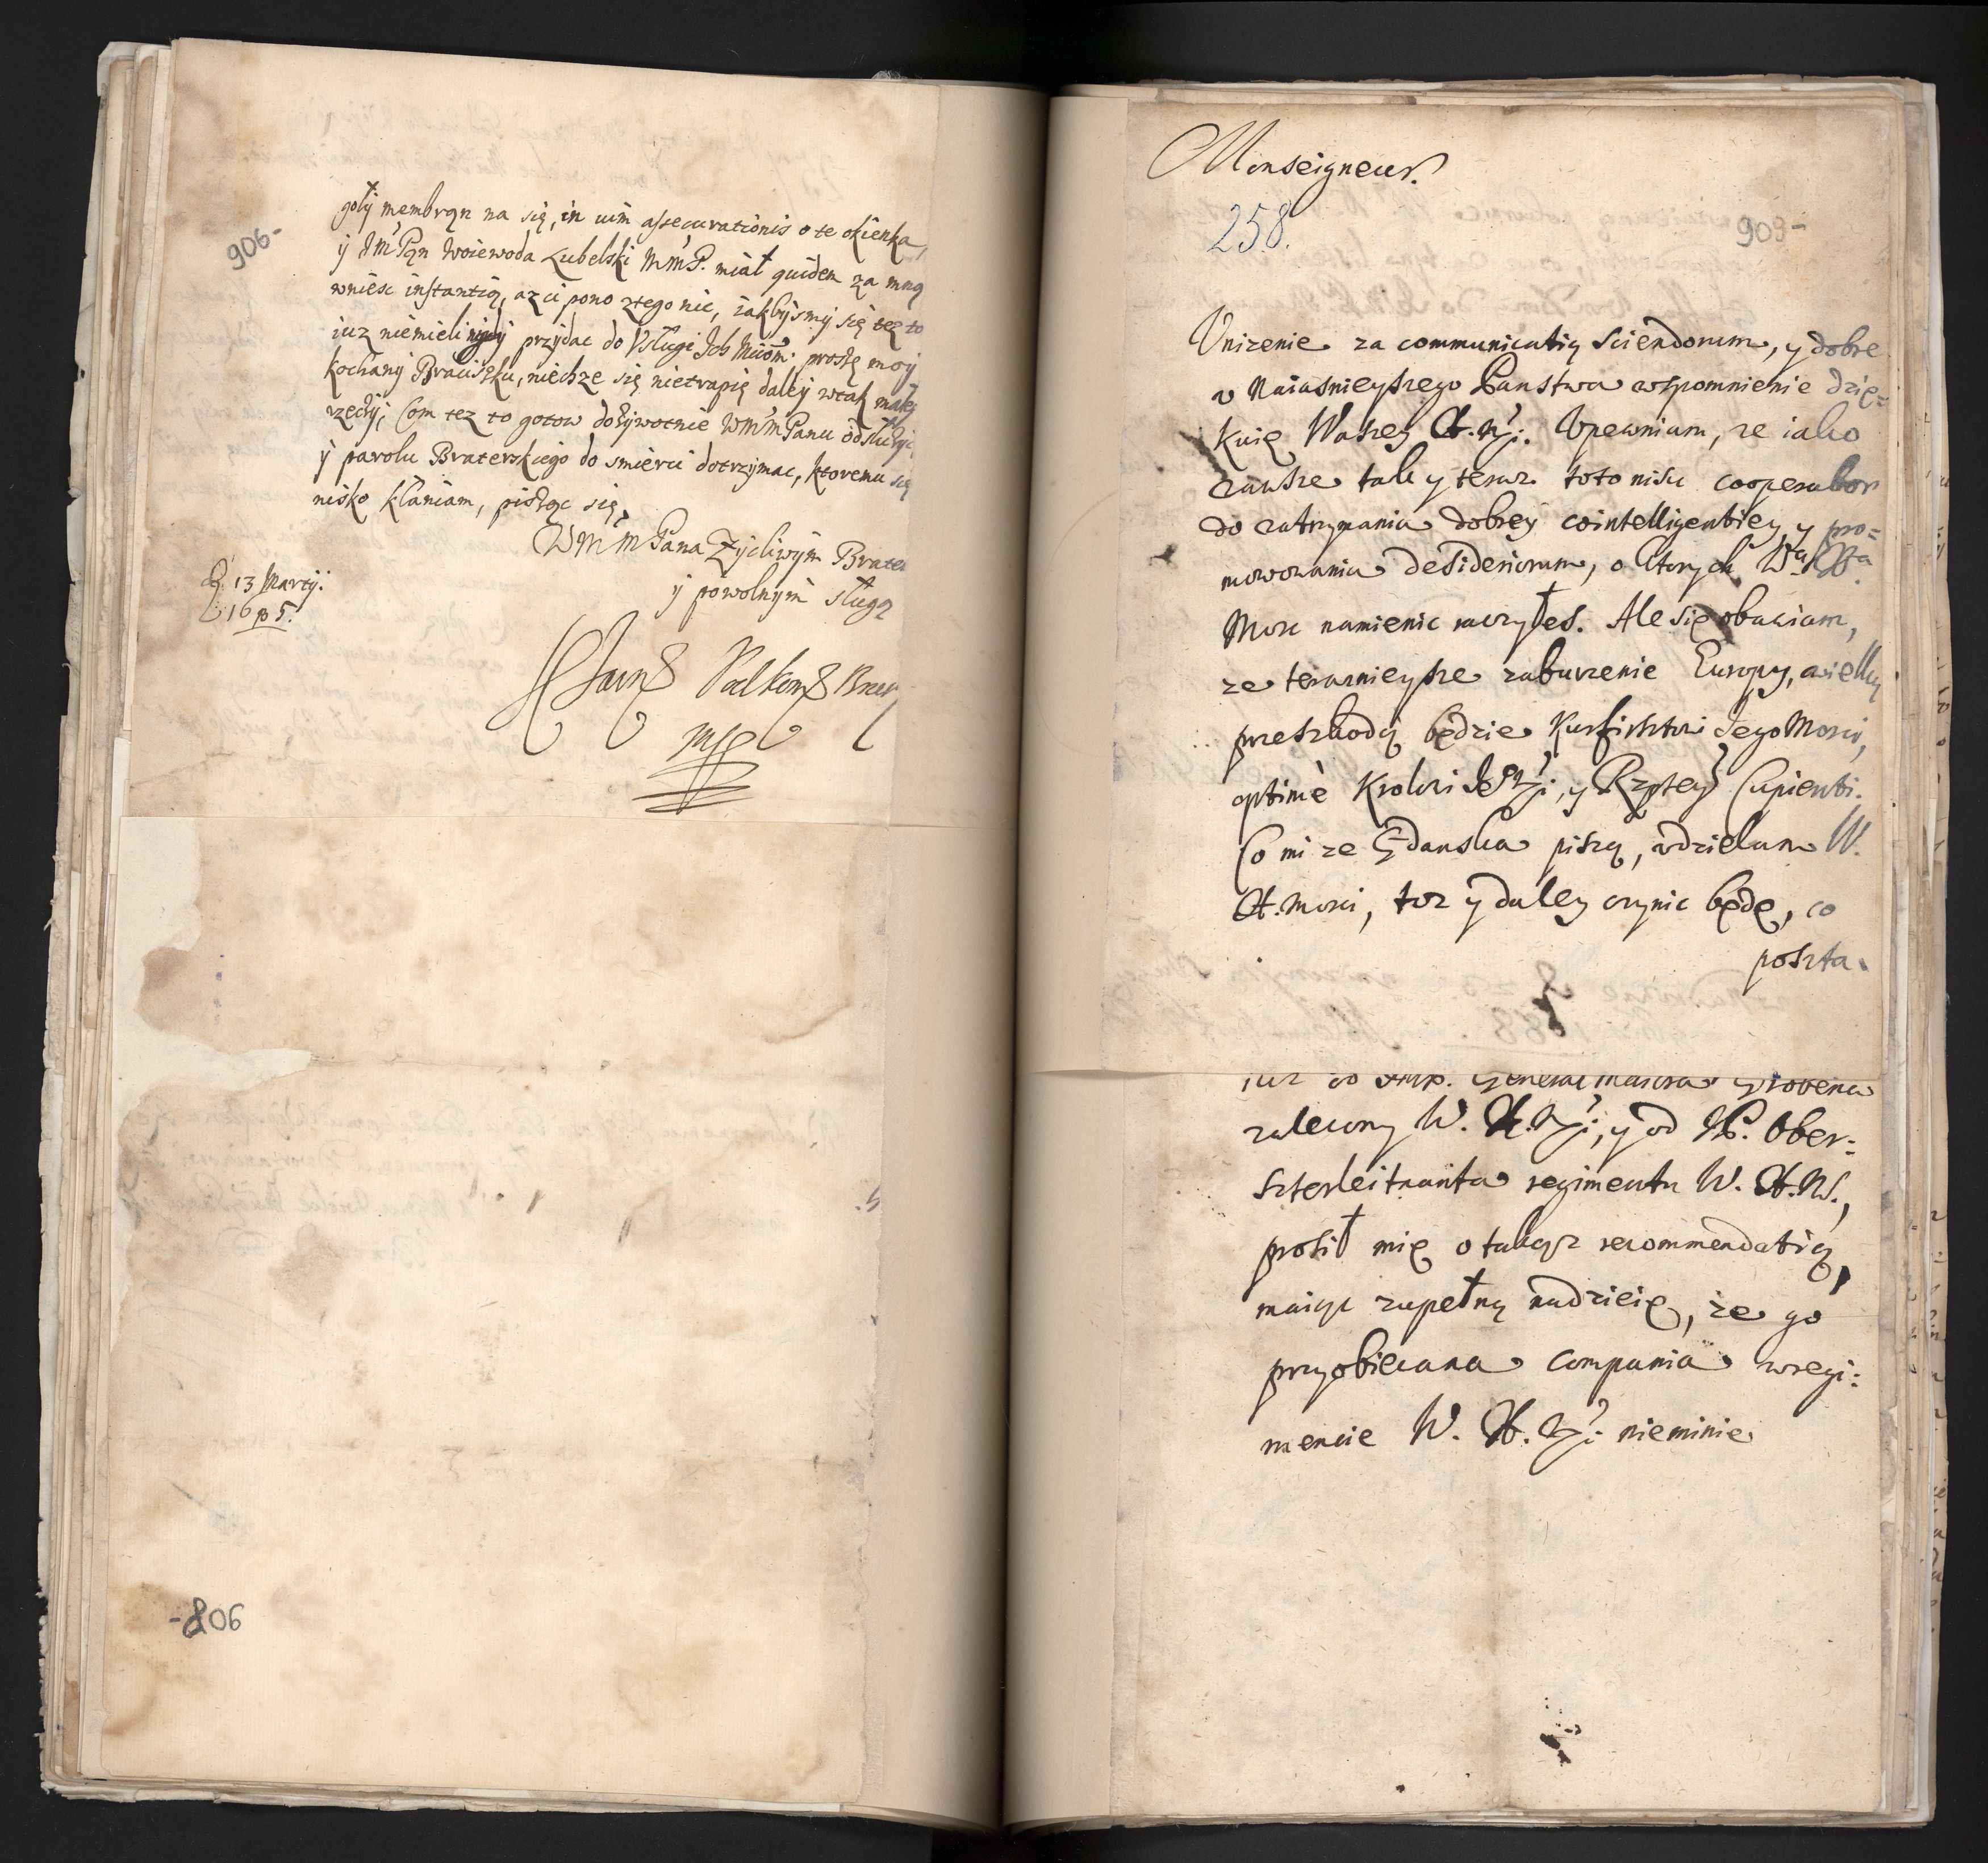 906-
goły membrąn na się, in uim assecurationis o te okienka,
ÿ JM Pąn Woiewoda Lubelski MMP. miał quidem za mną
wniesc instantią, az ci pono ztego nic, iakbÿsmÿ się tez to
iuz niemieli nigdÿ przÿdac do Vsługi Ich Mciom. proszę moÿ
Kochanÿ Braciszku, niechze się nietrapię daleÿ wtak małeÿ
rzeczÿ, Com tez to gotow dozÿwotnie WMMPanu odsłuzÿc
ÿ parolu Braterskiego do smierci dotrzÿmac, ktoremu się
nisko kłaniam, pisząc się,
WMMPana Zÿcliwÿm Bratem
ÿ powolnÿm sługą
D 13 Martÿ.
1685.
mp
-806
Monseigneur.
258.
909-
Vnizenie za communicatią sciendorum, y dobre
v Naiasnieyszego Panstwa wspomnienie dzię=
kuię Waszey H. Mci. Vpewniam, ze iako
zawsze tak y teraz toto nisu cooperabor
do zatrzymania dobrey cointelligentiey y pro=
mowowania desideriorum, o ktorych Wa Xca
Mosc namienic raczyłes. Ale się obawiam,
ze teraznieysze zaburzenie Europy, wielką
przeszkodą będzie Kurfirsztowi JegoMosci,
optimè Krolowi JeMci, y Rzptey Cupienti.
Co mi ze Gdanska piszą, vdzielam W.
H. Mosci, toz y daley czynic będę, co
poszta.
iuz od Jmp. General Maiora Grobena
zalecony W. H. Mci, y od JP. Ober=
szterleitnanta regimentu W. H. M.,
prosił mię o takąz recommendatią,
maiąc zupełną nadzieię, ze go
przyobiecana compania wregi=
mencie W. H. Mci nieminie